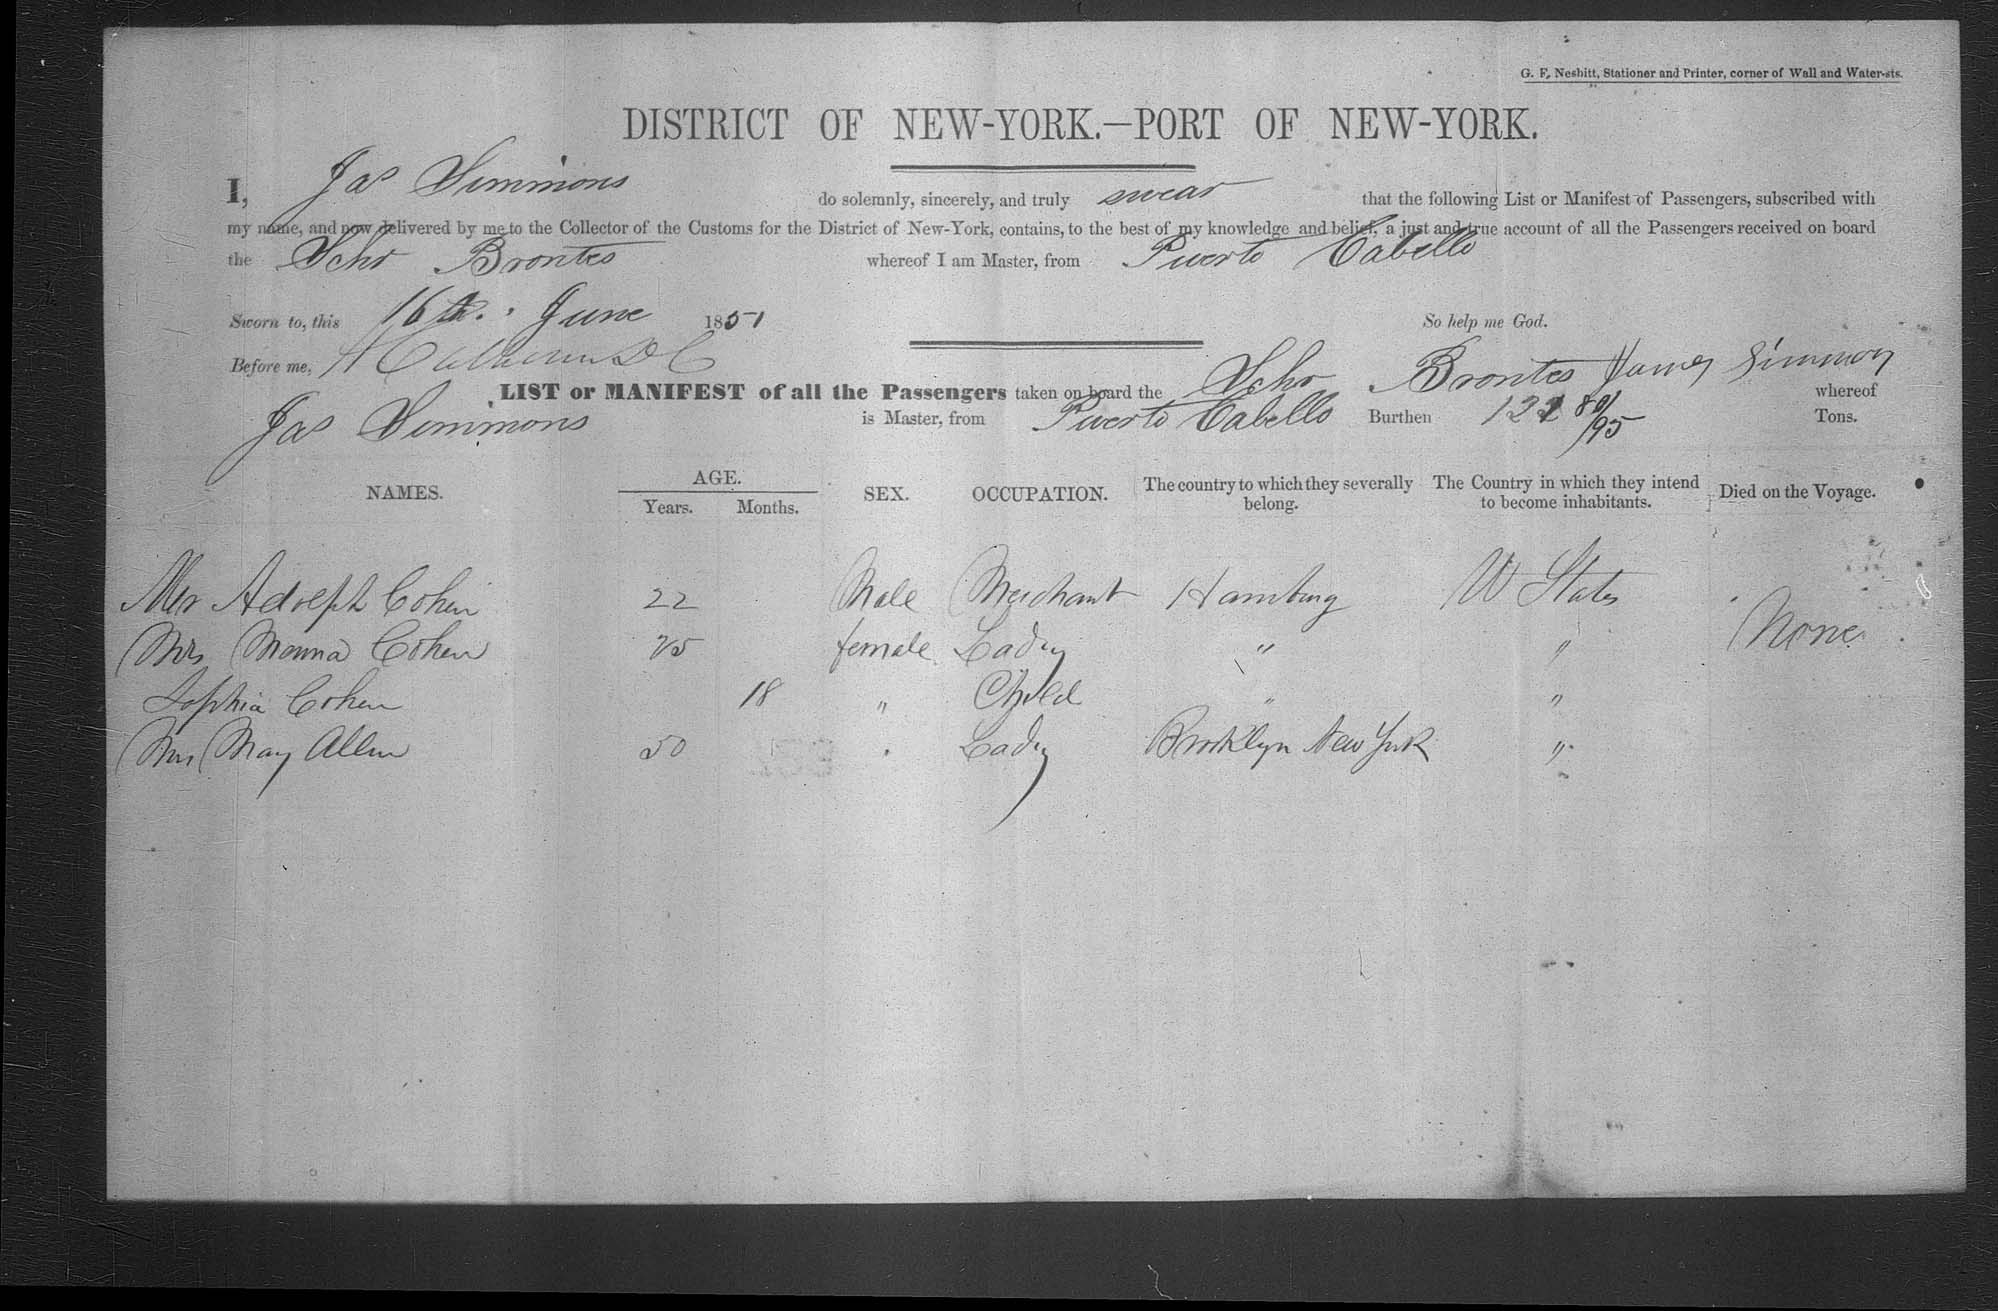 G. F. Nesbitt, Stationer and Printer, corner of Wall and Water-sts.
DISTRICT OF NEW-YORK.—PORT OF NEW-YORK.
I, Jas Simmons do solemnly, sincerely, and truly swear that the following List or Manifest of Passengers, subscribed with
my name, and now delivered by me to the Collector of the Customs for the District of New-York, contains, to the best of my knowledge and belief, a just and true account of all the Passengers received on board
the Schr Brontes whereof I am Master, from Puerto Cabello
Sworn to, this 16th. June 1851 So help me God.
Before me, James Simmons
LIST or MANIFEST of all the Passengers taken on board the Schr Brontes whereof
Jas Simmons is Master, from Puerto Cabello Burthen Tons.
NAMES. AGE. Years. Months. SEX. OCCUPATION. The country to which they severally belong. The Country in which they intend to become inhabitants. Died on the Voyage.
Mr Adolph Cohen 22 Male Merchant Hamburg U States None
Mrs Cohen 25 female Lady " "
Sophia Cohen 18 " Child " "
Mrs May Allen 50 " Lady Brooklyn New York "